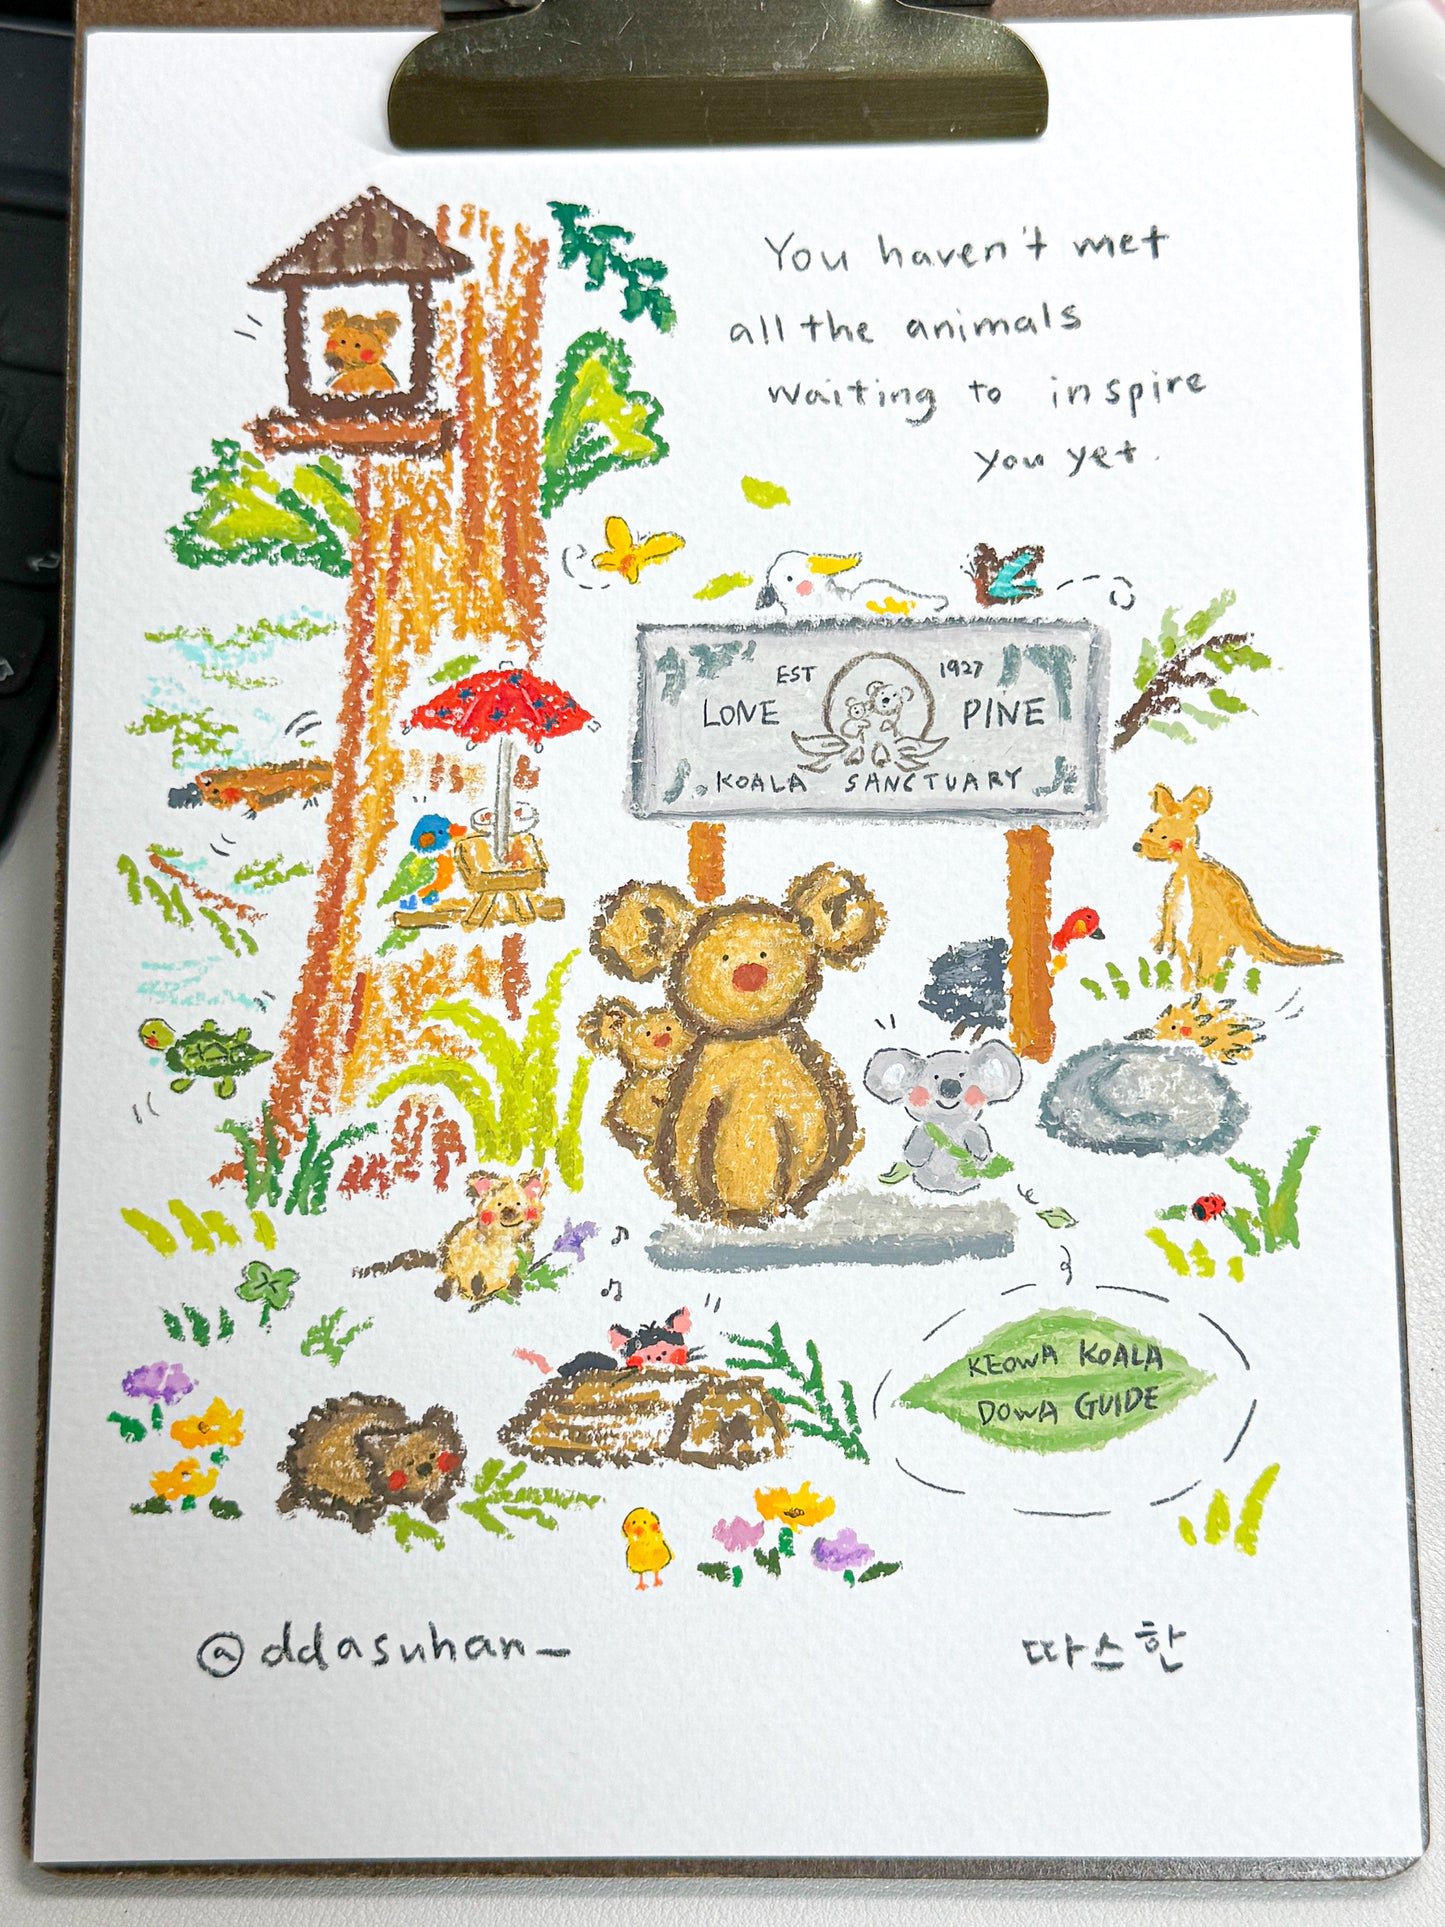 You haven't met
all the animals
waiting to inspire
you yet.
EST 1927
LONE PINE
KOALA SANCTUARY
KEOWA KOALA
DOWA GUIDE
@ddasuhan_
따스한